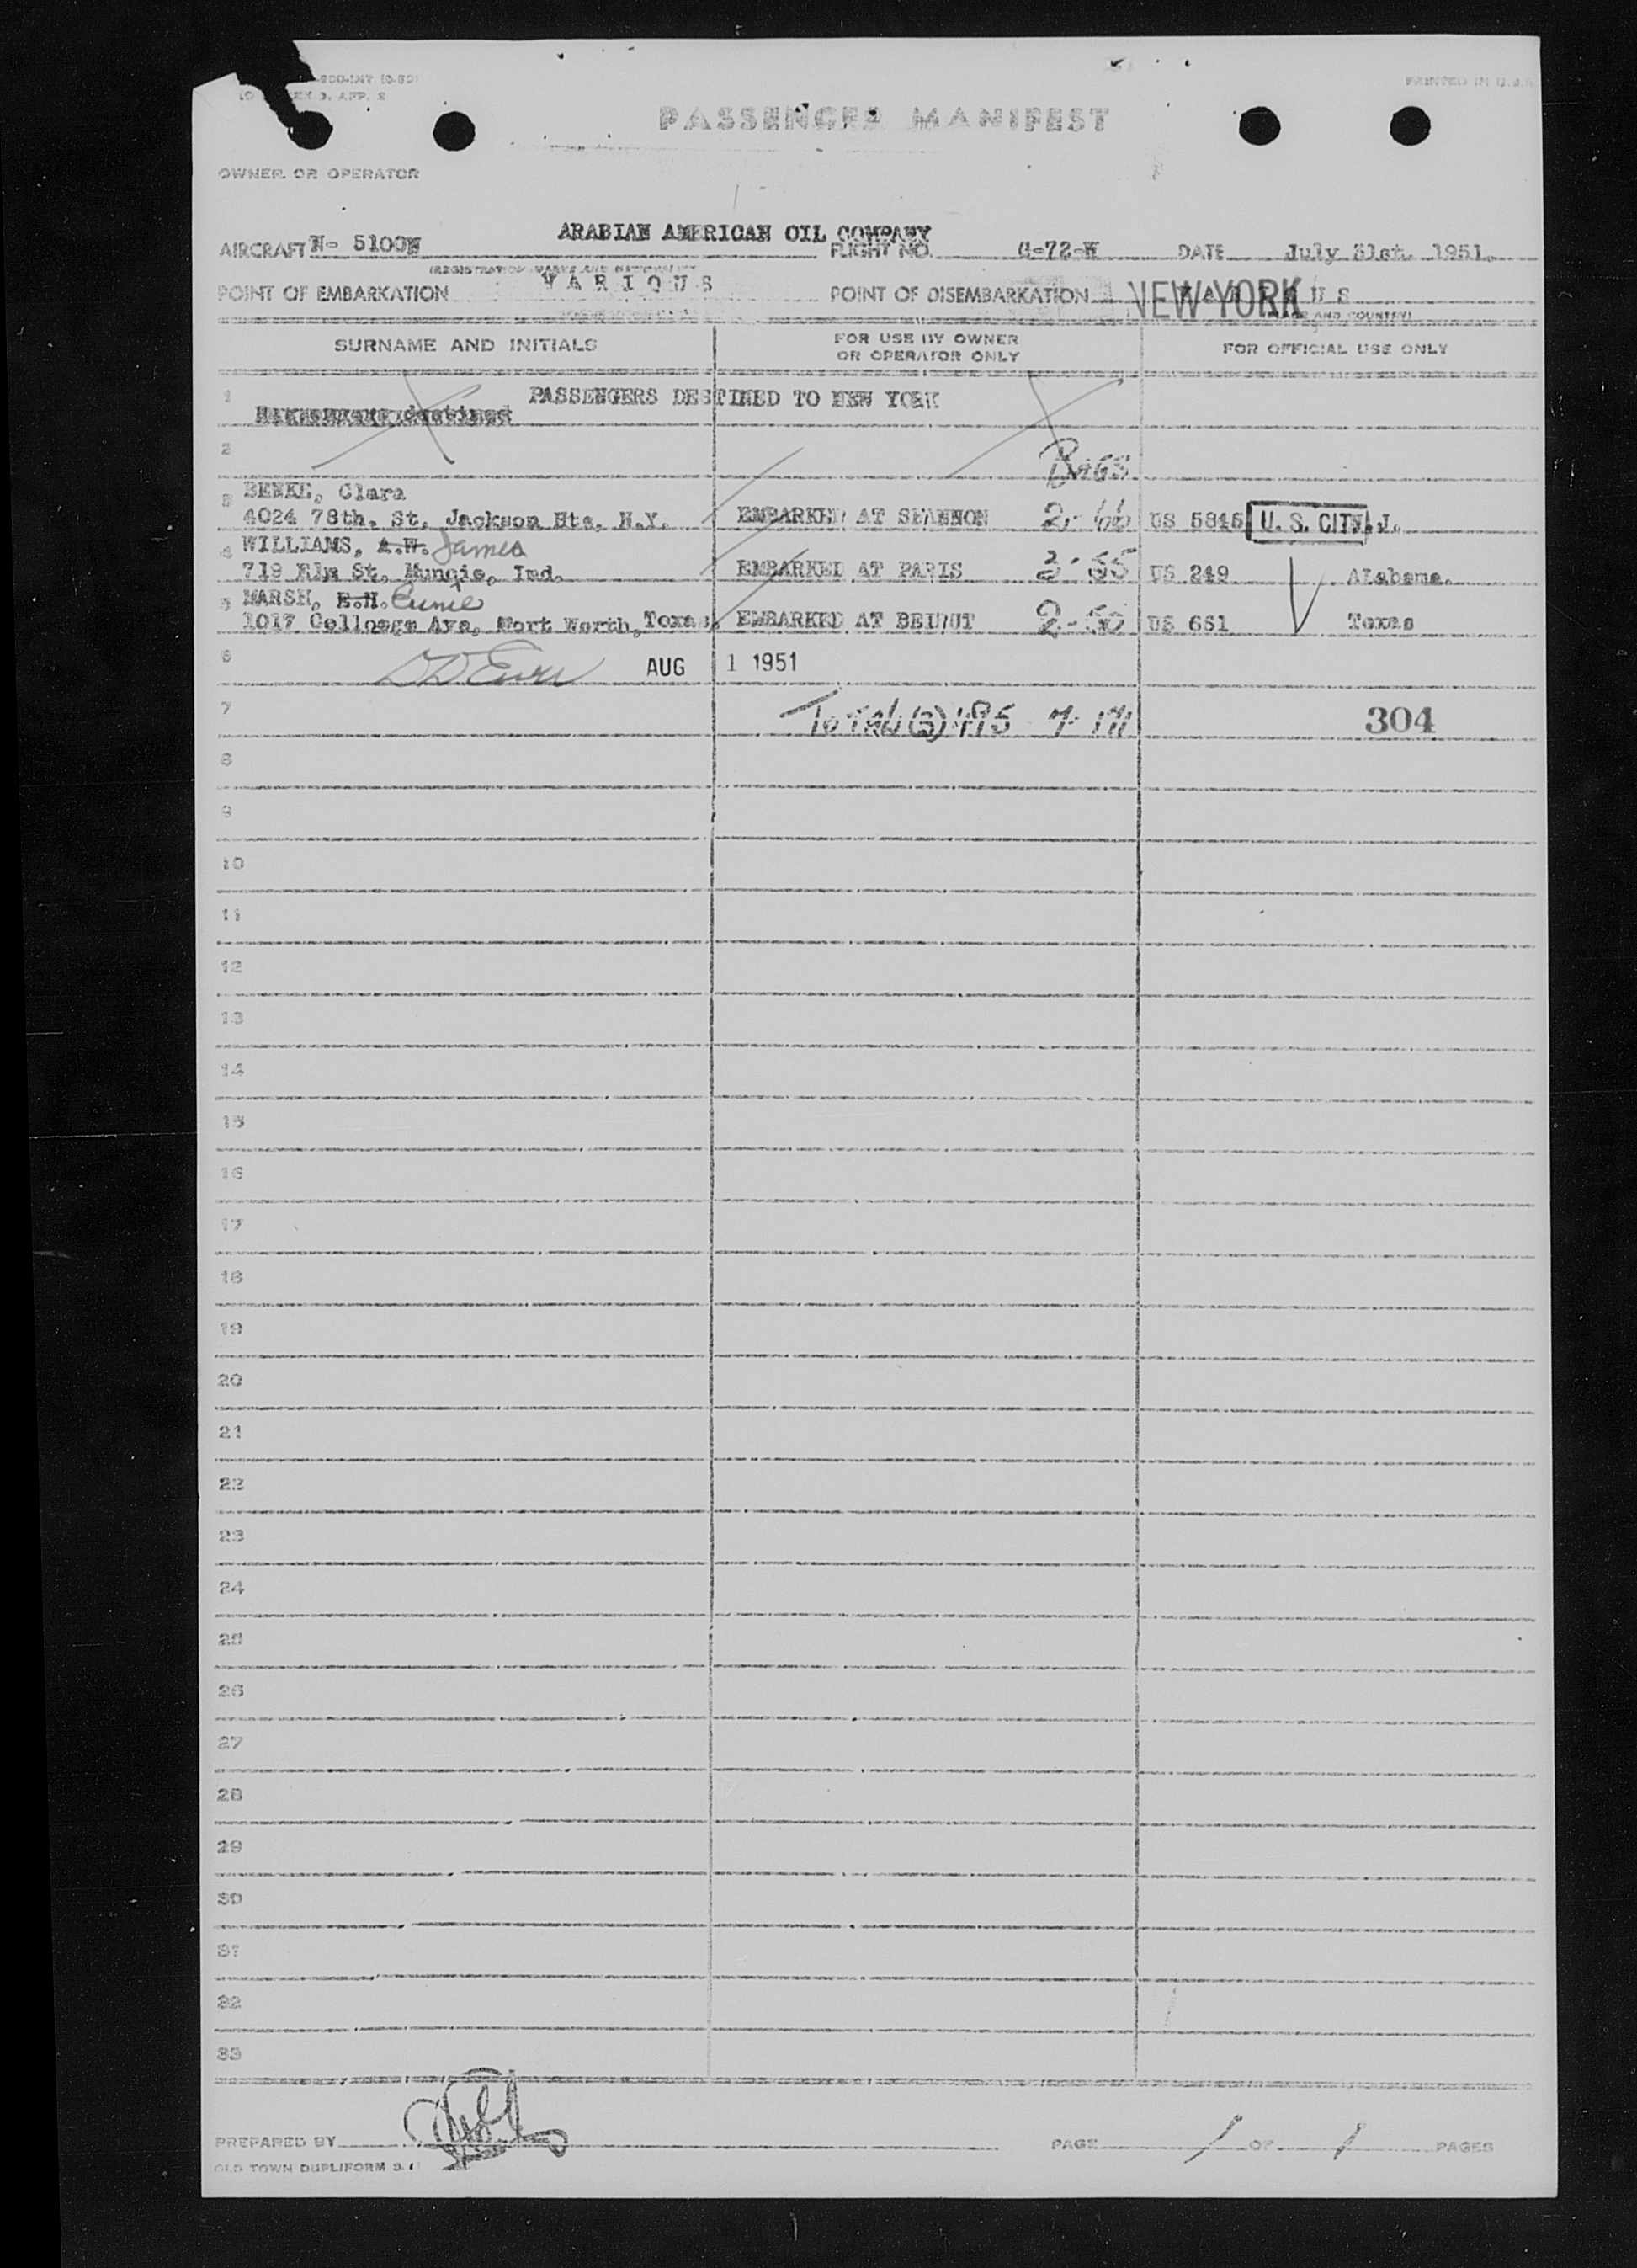 PRINTED IN U.S.A.
PASSENGER MANIFEST
OWNER OR OPERATOR
ARABIAN AMERICAN OIL COMPANY
AIRCRAFT N- 5100N FLIGHT NO. C-72-W DATE July 31st. 1951.
(REGISTRATION MARKS AND NATIONALITY)
POINT OF EMBARKATION VARIOUS POINT OF DISEMBARKATION NEW YORK
SURNAME AND INITIALS FOR USE BY OWNER OR OPERATOR ONLY FOR OFFICIAL USE ONLY
1 PASSENGERS DESTINED TO NEW YORK
2 BAGS
3 BENKE, Clara
4024 78th. St. Jackson Hts, N.Y. EMBARKED AT SHANNON 2-66 US 5845 U. S. CIT. N.J.
4 WILLIAMS, A.W. James
719 Elm St. Muncie, Ind. EMBARKED AT PARIS 3-55 US 249 ALabama.
5 MARSH, E.H.
1017 Colloege Ave, Fort Worth, Texas, EMBARKED AT BEIRUT 2-50 US 661 Texas
6 AUG 1 1951
7 TOTAL (3) 495 7-171 304
8
9
10
11
12
13
14
15
16
17
18
19
20
21
22
23
24
25
26
27
28
29
30
31
32
33
PREPARED BY PAGE 1 OF 1 PAGES
OLD TOWN DUPLIFORM